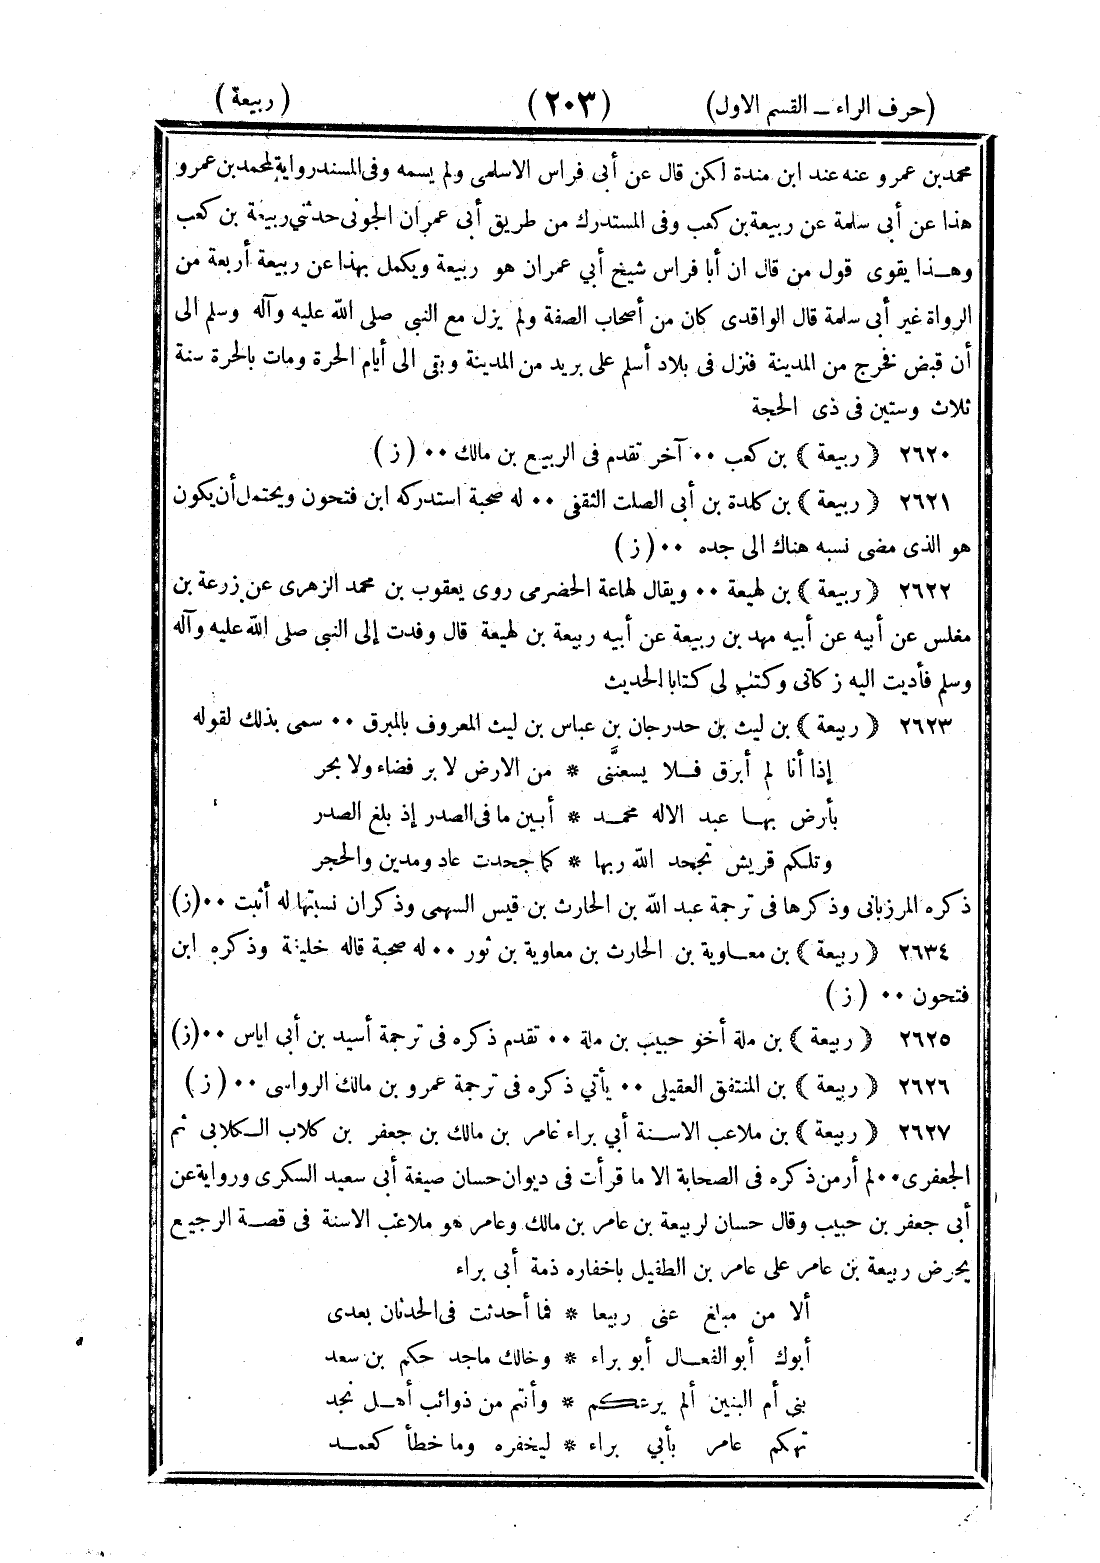 (حرف الراء ــ القسم الاول) (٢٠٣) (ربيعة)
محمد بن عمرو عنه عند ابن مندة لكن قال عن أبى فراس الاسلمى ولم يسمه وفى المسند رواية لمحمد بن عمرو
هذا عن أبى سلمة عن ربيعة بن كعب وفى المستدرك من طريق أبى عمران الجونى حدثنى ربيعة بن كعب
وهــذا يقوى قول من قال ان أبا فراس شيخ أبي عمران هو ربيعة ويكمل بهذا عن ربيعة أربعة من
الرواة غير أبى سلمة قال الواقدى كان من أصحاب الصفة ولم يزل مع النبي صلى الله عليه وآله وسلم الى
أن قبض فخرج من المدينة فنزل فى بلاد أسلم على بريد من المدينة وبقى الى أيام الحرة ومات بالحرة سنة
ثلاث وستين فى ذى الحجة
٢٦٢٠ ﴿ ربيعة ﴾ بن كعب ٠٠ آخر تقدم فى الربيع بن مالك ٠٠ ( ز )
٢٦٢١ ﴿ ربيعة ﴾ بن كلدة بن أبى الصلت الثقفى ٠٠ له صحبة استدركه ابن فتحون ويحتمل أن يكون
هو الذى مضى نسبه هناك الى جده ٠٠ ( ز )
٢٦٢٢ ﴿ ربيعة ﴾ بن لهيعة ٠٠ ويقال لهاعة الحضرمى روى يعقوب بن محمد الزهرى عن زرعة بن
مغلس عن أبيه عن أبيه مهد بن ربيعة عن أبيه ربيعة بن لهيعة قال وفدت إلى النبي صلى الله عليه وآله
وسلم فأديت اليه زكاتى وكتب لى كتابا الحديث
٢٦٢٣ ﴿ ربيعة ﴾ بن ليث بن حدرجان بن عباس بن ليث المعروف بالمبرق ٠٠ سمى بذلك لقوله
إذا أنا لم أبرق فــلا يسعنَّنى * من الارض لا بر فضاء ولا بحر
بأرض بهــا عبد الاله محمــد * أبين ما فى الصدر إذ بلغ الصدر
وتلكم قريش تجحد الله ربها * كما جحدت عاد ومدين والحجر
ذكره المرزبانى وذكرها فى ترجمة عبد الله بن الحارث بن قيس السهمى وذكر ان نسبتها له أثبت ٠٠ (ز)
٢٦٣٤ ﴿ ربيعة ﴾ بن معــاوية بن الحارث بن معاوية بن ثور ٠٠ له صحبة قاله خليفة وذكره ابن
فتحون ٠٠ ( ز )
٢٦٢٥ ﴿ ربيعة ﴾ بن ملة أخو حبيب بن ملة ٠٠ تقدم ذكره فى ترجمة أسيد بن أبي اياس ٠٠ (ز)
٢٦٢٦ ﴿ ربيعة ﴾ بن المنتفق العقيلى ٠٠ يأتي ذكره فى ترجمة عمرو بن مالك الرواسى ٠٠ ( ز )
٢٦٢٧ ﴿ ربيعة ﴾ بن ملاعب الاســنة أبي براء عامر بن مالك بن جعفر بن كلاب الــكلابى ثم
الجعفرى ٠٠ لم أر من ذكره فى الصحابة الا ما قرأت فى ديوان حسان صيغة أبى سعيد السكرى ورواية عن
أبى جعفر بن حبيب وقال حسان لربيعة بن عامر بن مالك وعامر هو ملاعب الاسنة فى قصــة الرجيع
يحرض ربيعة بن عامر على عامر بن الطفيل باخفاره ذمة أبى براء
ألا من مبلغ عنى ربيعا * فما أحدثت فى الحدثان بعدى
أبوك أبو الفعــال أبو براء * وخالك ماجد حكم بن سعد
بنى أم البنين ألم يرعــكم * وأنتم من ذوائب أهــل نجد
تهكم عامر بأبي براء * ليخفره وما خطأ كعمــد